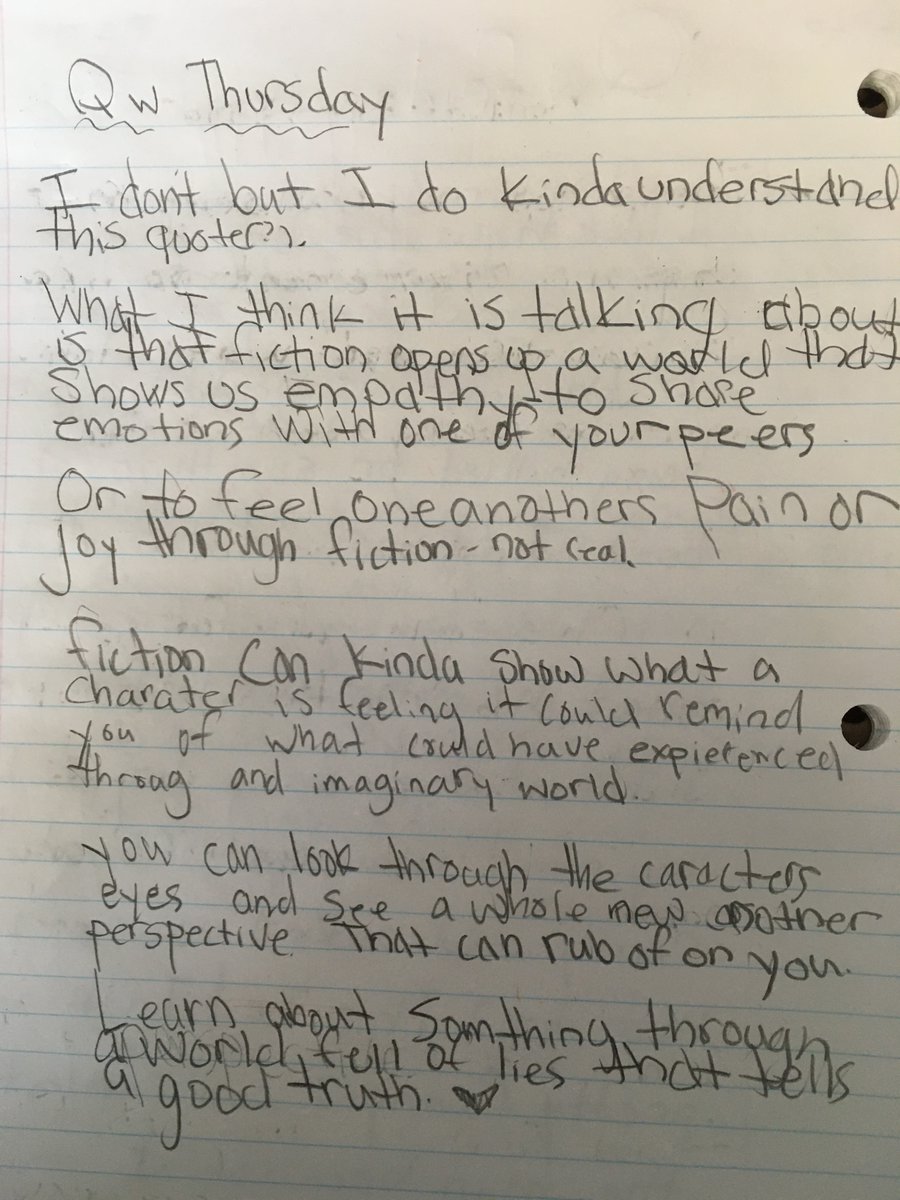 Qw Thursday
I don't but I do kinda understand
this quote(?).
What I think it is talking about
is that fiction opens up a world that
shows us empathy-to share
emotions with one of your peers.
Or to feel one anothers pain or
joy through fiction - not real.
fiction can kinda show what a
charater is feeling it could remind
you of what could have expierenced
throag and imaginary world.
you can look through the caracters
eyes and see a whole new another
perspective that can rub of on you.
Learn about Somthing through
a world fell of lies that tells
a good truth.